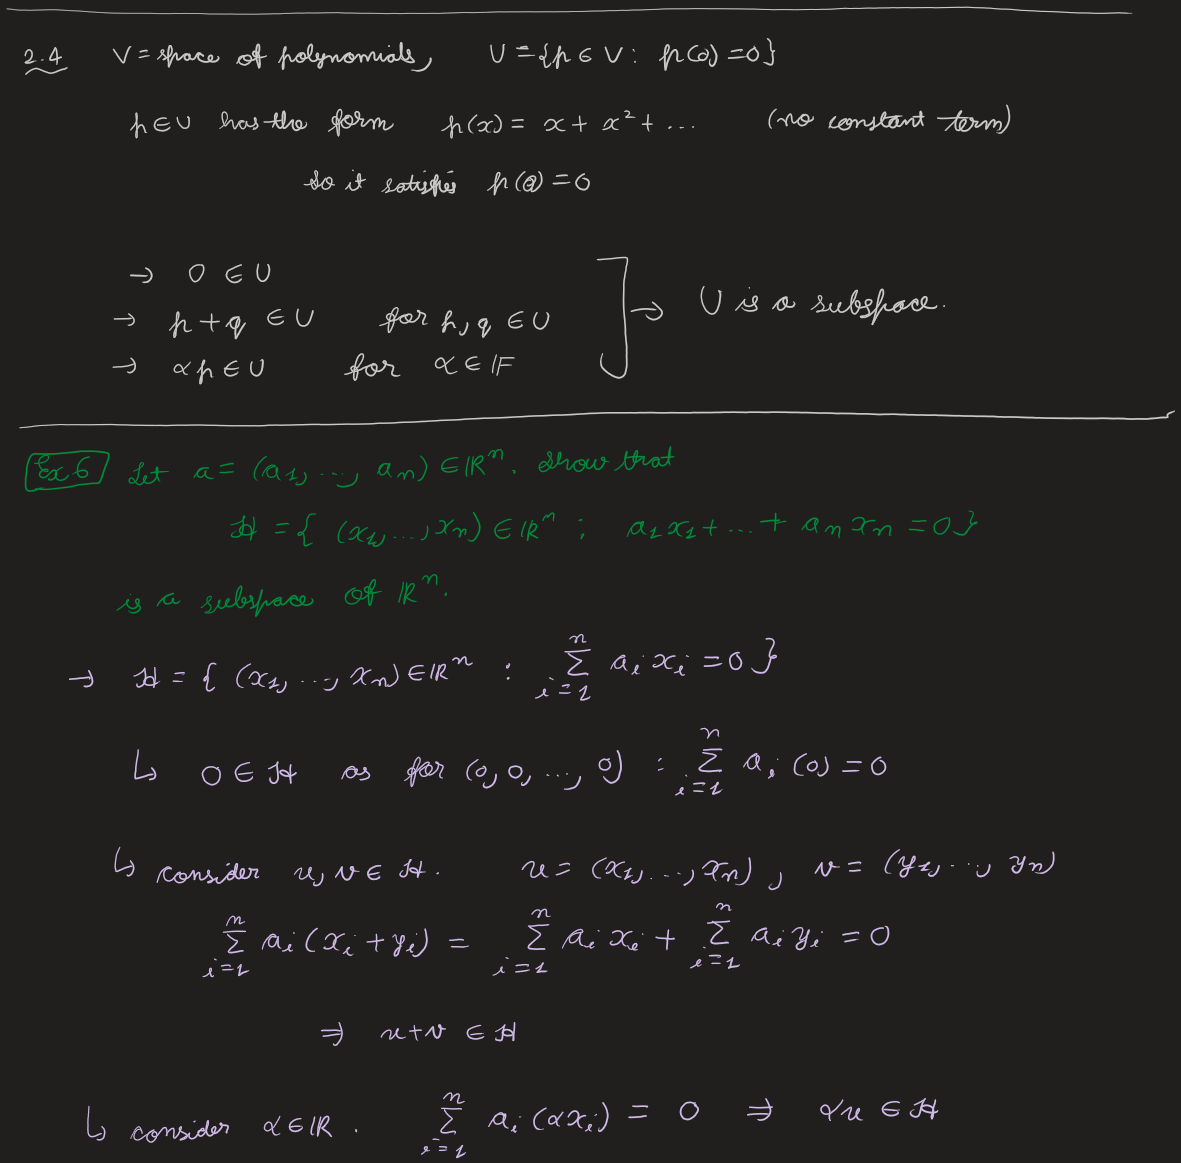 2.4 V = space of polynomials, U = {p ∈ V : p(0) = 0}
p ∈ U has the form p(x) = x + x² + ... (no constant term)
so it satisfies p(0) = 0
→ 0 ∈ U
→ p + q ∈ U for p, q ∈ U
→ αp ∈ U for α ∈ F
→ U is a subspace.
Ex 6 Let a = (a₁, ..., aₙ) ∈ ℝⁿ. Show that
H = { (x₁, ..., xₙ) ∈ ℝⁿ : a₁x₁ + ... + aₙxₙ = 0 }
is a subspace of ℝⁿ.
→ H = { (x₁, ..., xₙ) ∈ ℝⁿ : ∑ᵢ₌₁ⁿ aᵢxᵢ = 0 }
↳ 0 ∈ H as for (0, 0, ..., 0) : ∑ᵢ₌₁ⁿ aᵢ(0) = 0
↳ consider u, v ∈ H. u = (x₁, ..., xₙ), v = (y₁, ..., yₙ)
∑ᵢ₌₁ⁿ aᵢ(xᵢ + yᵢ) = ∑ᵢ₌₁ⁿ aᵢxᵢ + ∑ᵢ₌₁ⁿ aᵢyᵢ = 0
⇒ u + v ∈ H
↳ consider α ∈ ℝ. ∑ᵢ₌₁ⁿ aᵢ(αxᵢ) = 0 ⇒ αu ∈ H